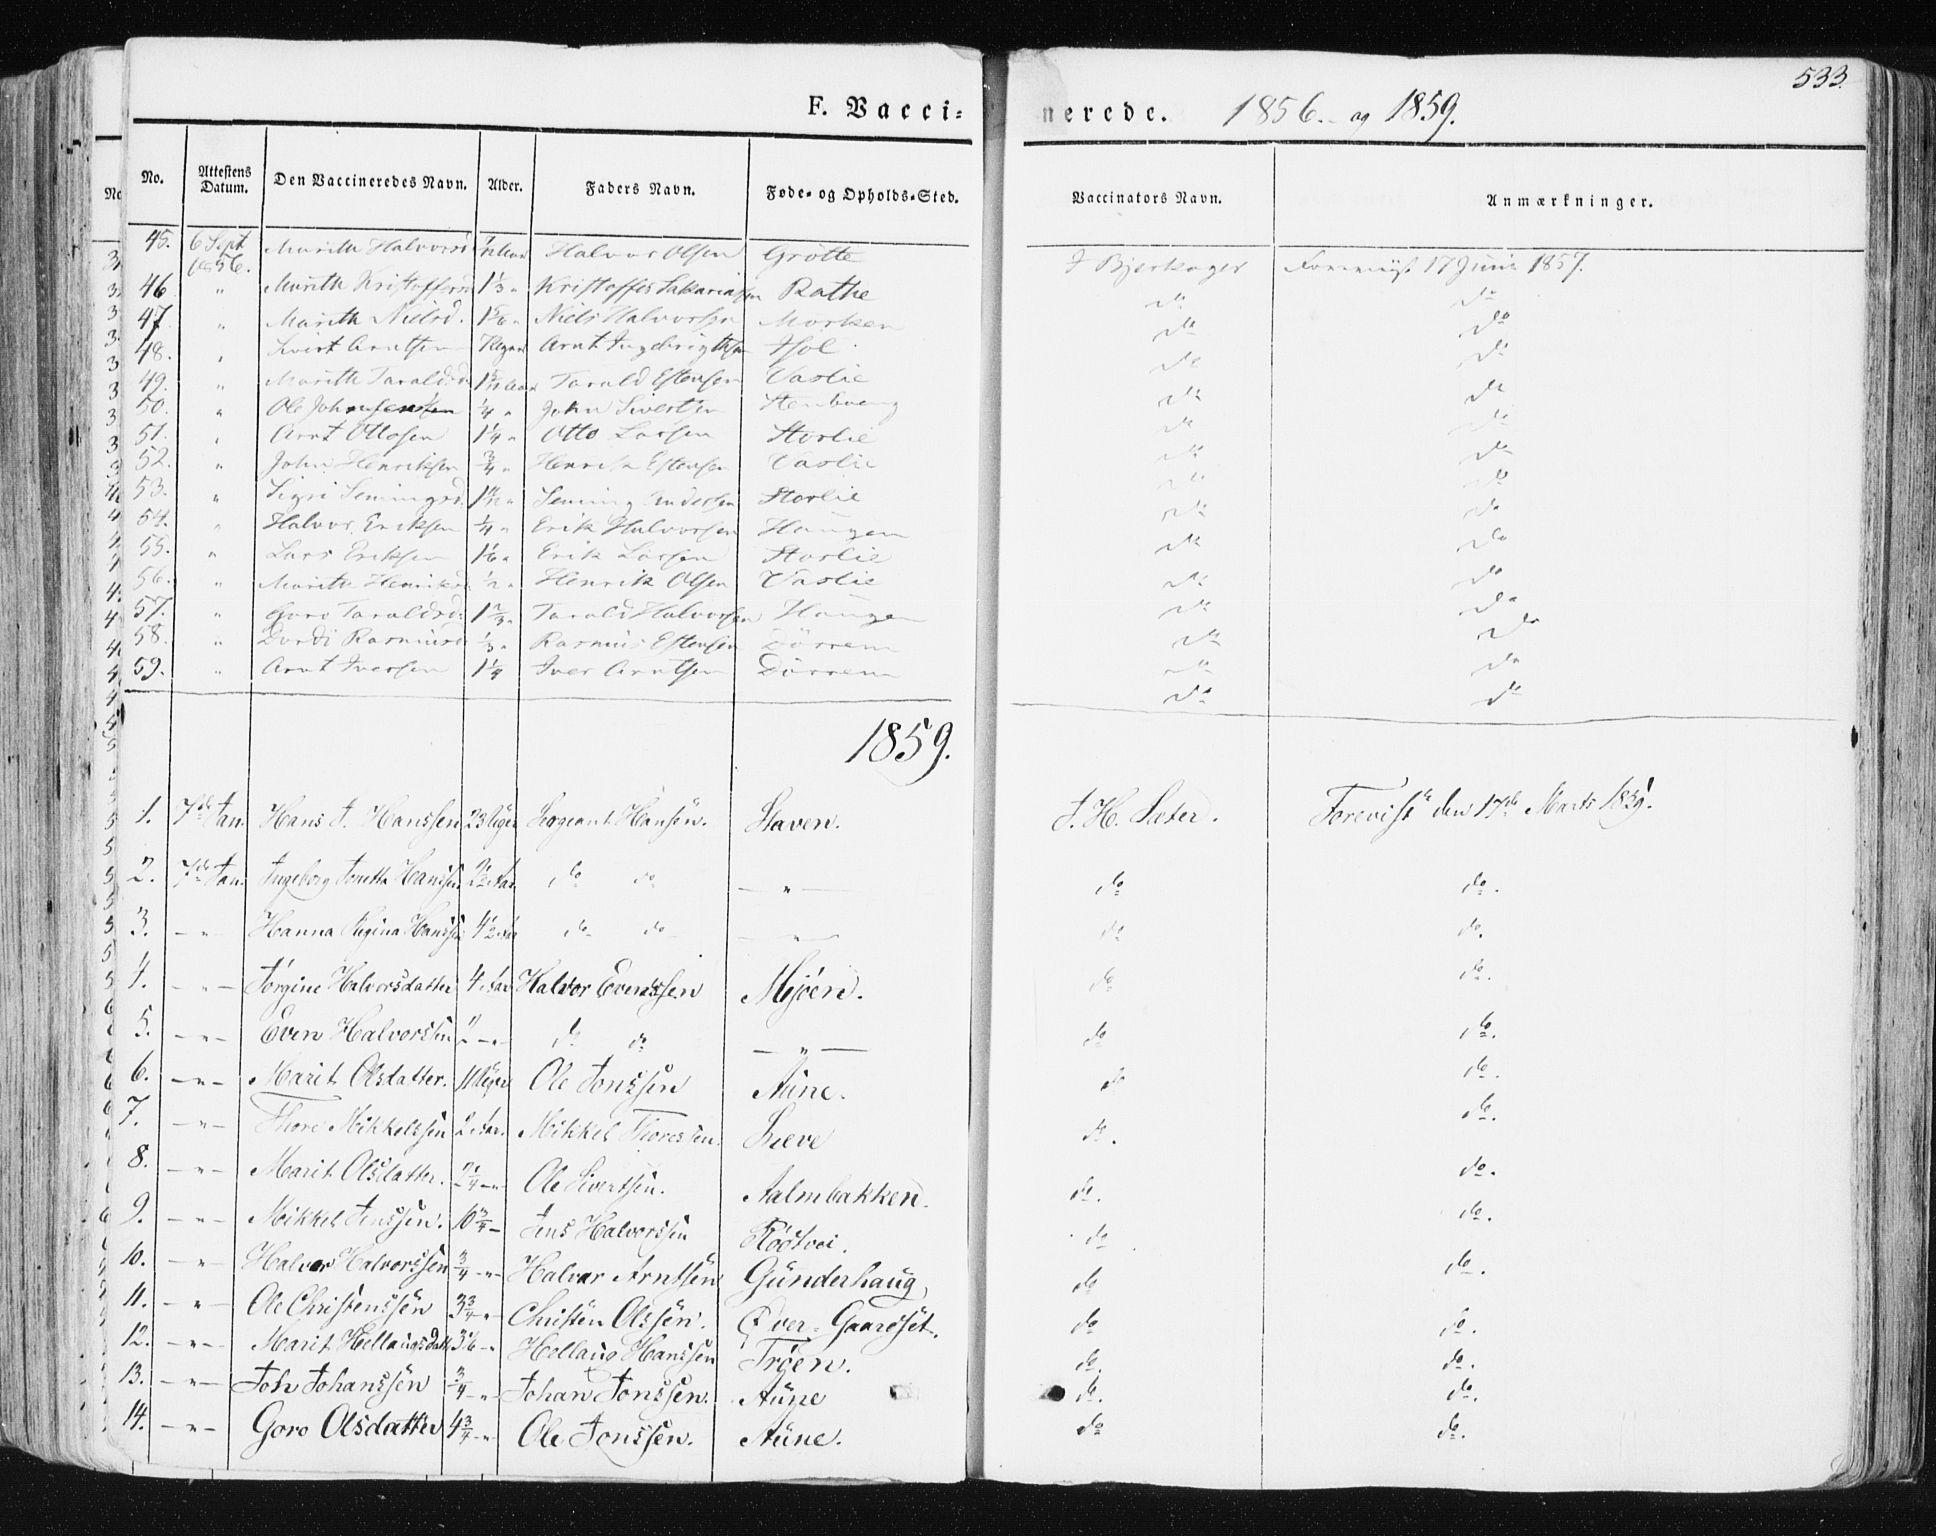 533.
F. Vaccinerede. 1856. og 1859.
No. Attestens Datum. Den Vaccineredes Navn. Alder. Faders Navn. Føde- og Opholds-Sted. Vaccinators Navn. Anmærkninger.
45. 6 Sept 1856. Marith Halvors Halvor Olsen Grøtte J Bjerkager 17 Juni 1857.
46 " Marith Kristoffersd 1⅓ " Kristoffer Sakariasen Rathe do do
47. " Marith Nielsd. 1⅚ " Niels Halvorsen Morken do do
48. " Sivert Arntsen Arnt Ingebrigtsen Hol do do
49. " Marith Taraldsd Tarald Estensen Vaslie do do
50. " Ole Johnsen ¼ " John Sivertsen Stenboeng do do
51. " Arnt Ottosen 1¼ " Otto Larsen Storlie do do
52. " John Henriksen ¾ " Henrik Estensen Vaslie do do
53. " Sigri Semingsd. Seming Andersen Storlie do do
54. " Halvor Eriksen ¼ " Erik Halvorsen Haugen do do
55. " Lars Eriksen 1⅙ " Erik Larsen Storlie do do
56. " Marith Henriksd ½ " Henrik Olsen Vaslie do do
57. " Goro Taraldsd. 1⅔ " Tarald Halvorsen Haugen do do
58. " Dordi Rasmusd ⅓ " Rasmus Estensen Dørrem do do
59. " Arnt Iversen 1¼ Iver Arntsen Dørrem do do
1859.
1. 7de Jan. Hans J. Hanssen 23 Uger Sergeant Hansen. Staven. J. H. Sæter. Forevist den 17de Marts 1859.
2. 7de Jan. Ingeborg Jonetta Hanssen 2½ Aar do do — " — do do.
3. — " Hanna Regina Hanssen 4½ Aar do do — " — do do.
4. — " — Jørgine Halvorsdatter 4 Aar Halvor Evenssen Mjøen. do do.
5. — " — Even Halvorssen 2 — " — do do — " — do do.
6. — " — Marit Olsdatter. 11 Uger Ole Jonssen Aune. do do.
7. — " — Thore Mikkelssen 2 Aar. Mikkel Thoressen. Sneve do. do.
8. — " — Marit Olsdatter. Ole Sivertsen. Aalmbakken. do. do.
9. — " — Mikkel Jenssen. 10¾ — Jens Halvorssen Røøtvei. do do.
10. — " — Halvor Halvorssen ¾ — " Halvor Arntsen Gunderhaug, do do.
11. — " — Ole Christenssen 3¾ " Christen Olssen. Over-Gaardset. do do.
12. — " — Marit Hellaugsdatt Hellaug Hanssen Trøen. do. do.
13. — " — Joh Johanssen ¾ — " Johan Jonssen. Aune do. do.
14. — " — Goro Olsdatter 4¾ — " Ole Jonssen. Aune. do do.